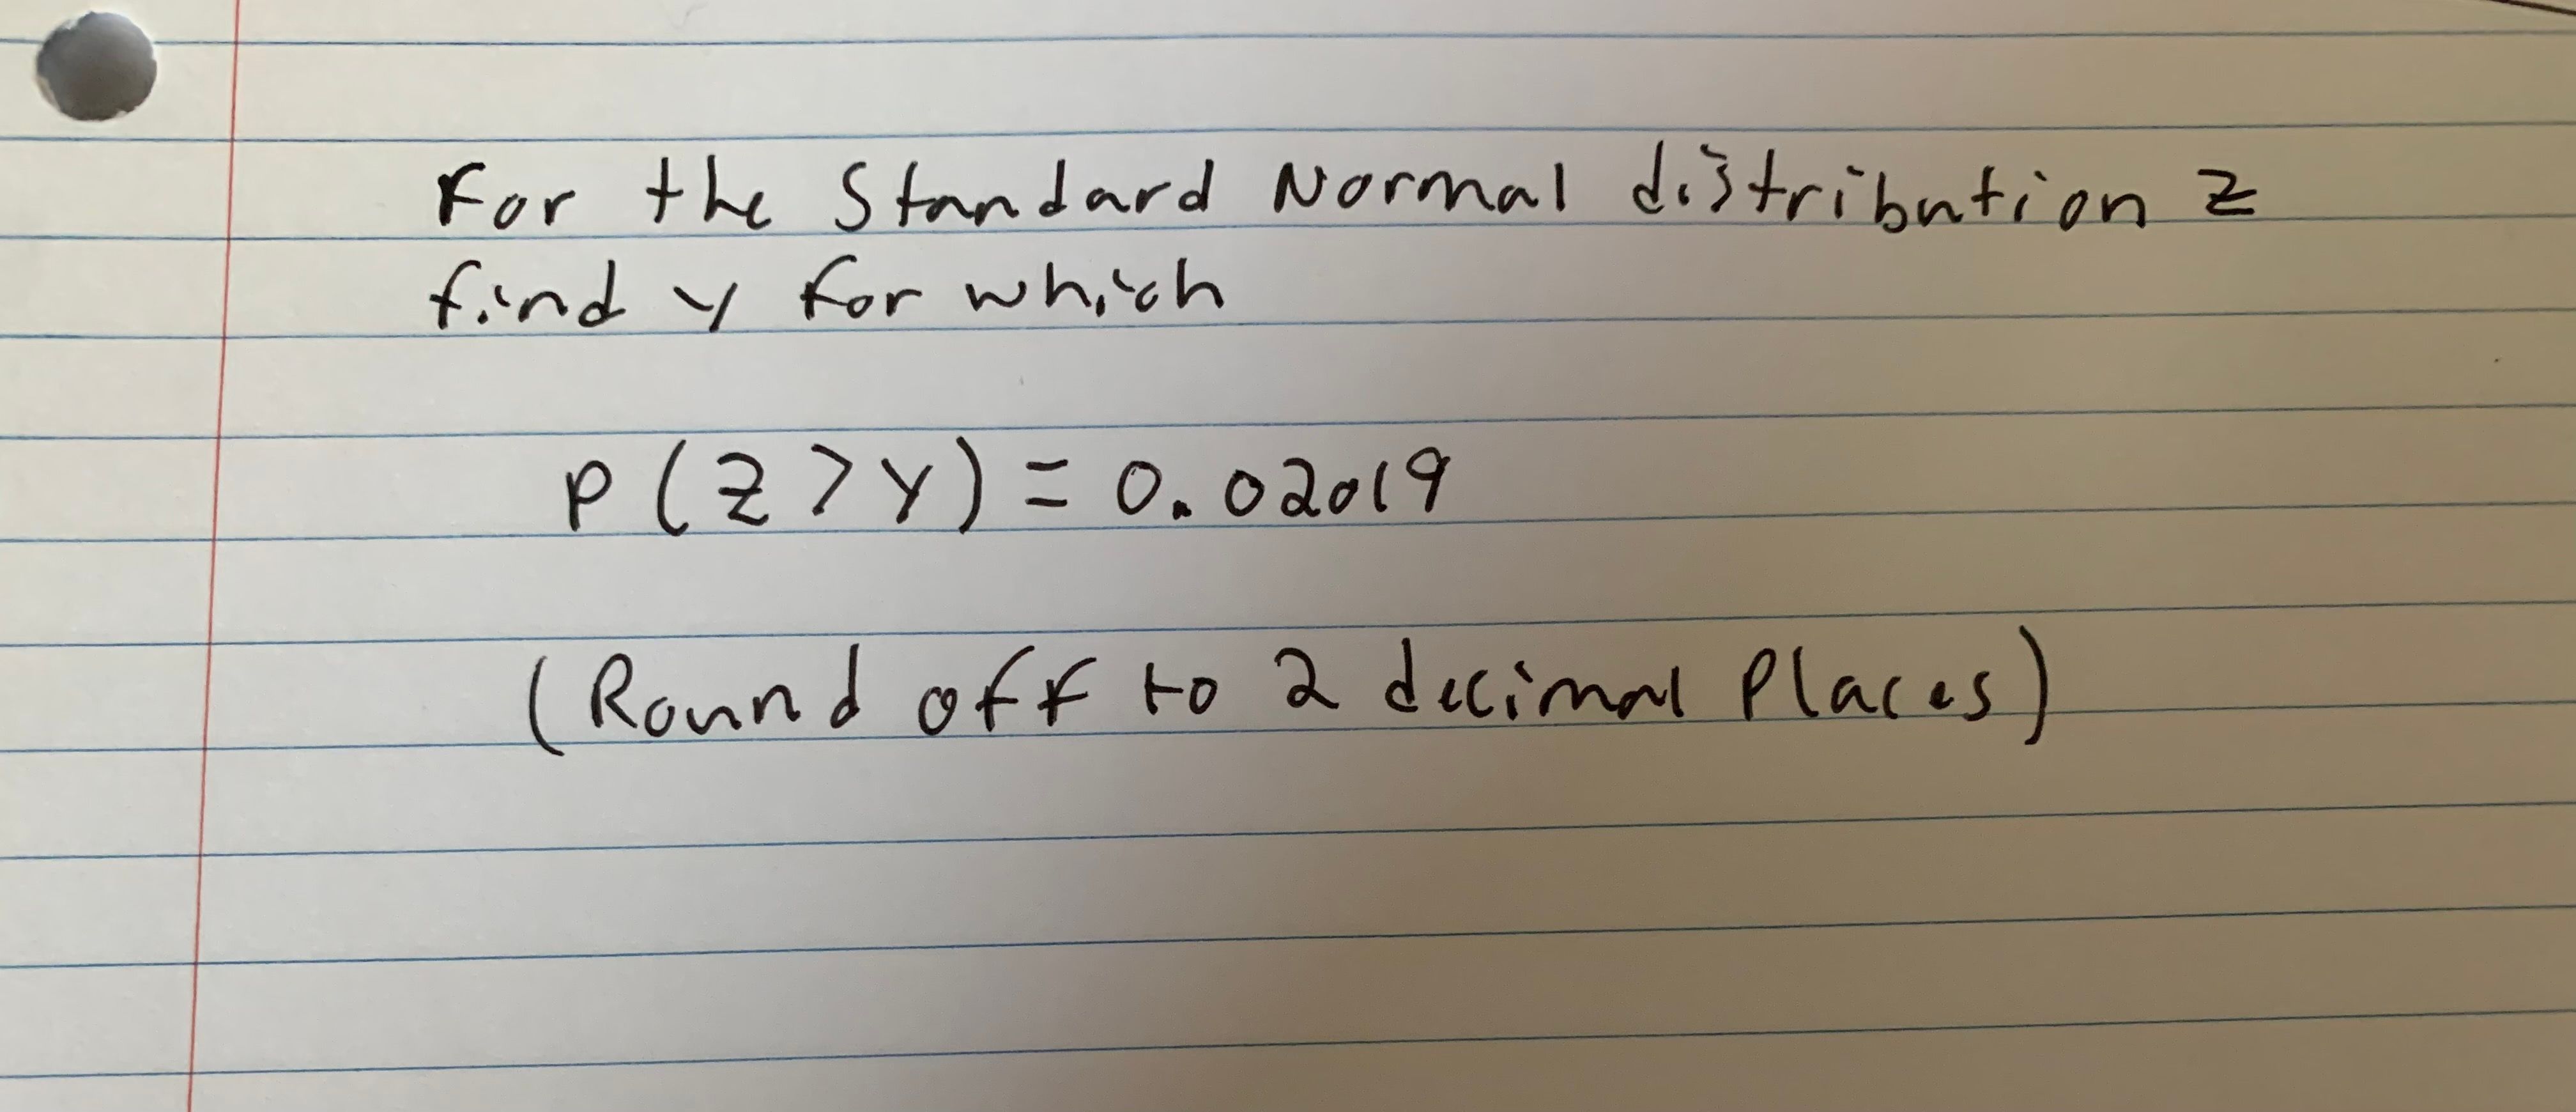 For the Standard Normal distribution Z
find y for which
P(Z>y)=0.02019
(Round off to 2 decimal Places)